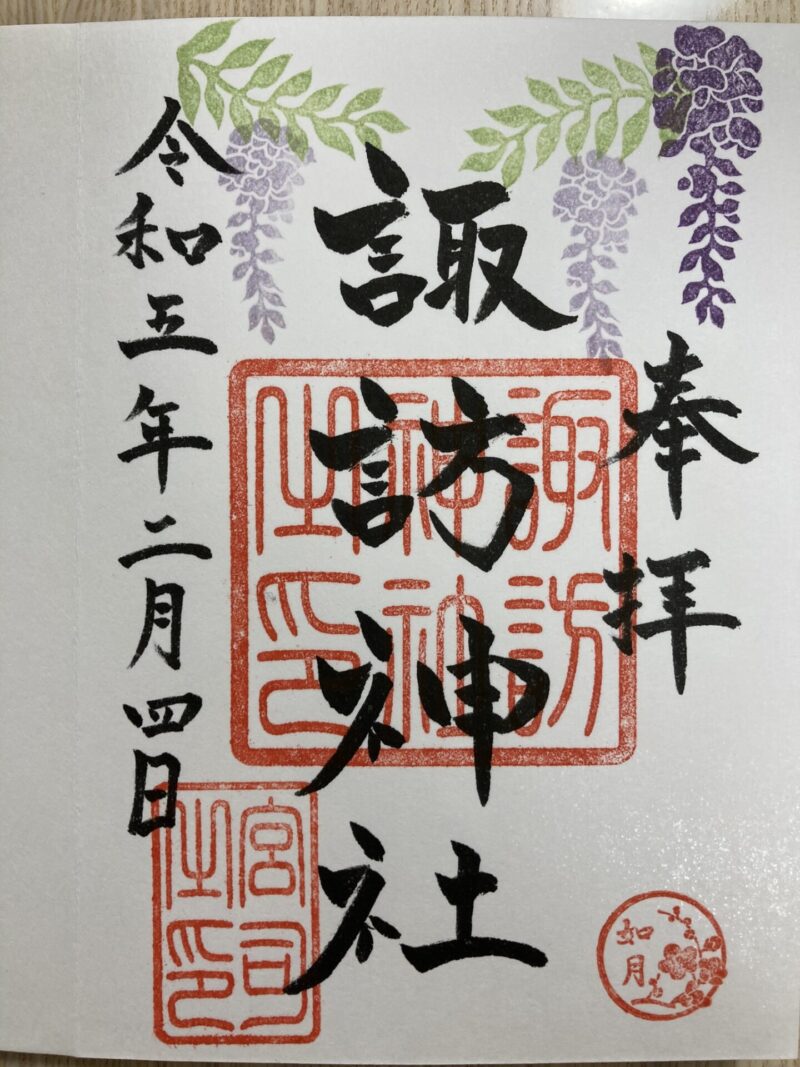 奉拝
諏訪神社
令和五年二月四日
諏訪
神社
之印
宮司
之印
如月